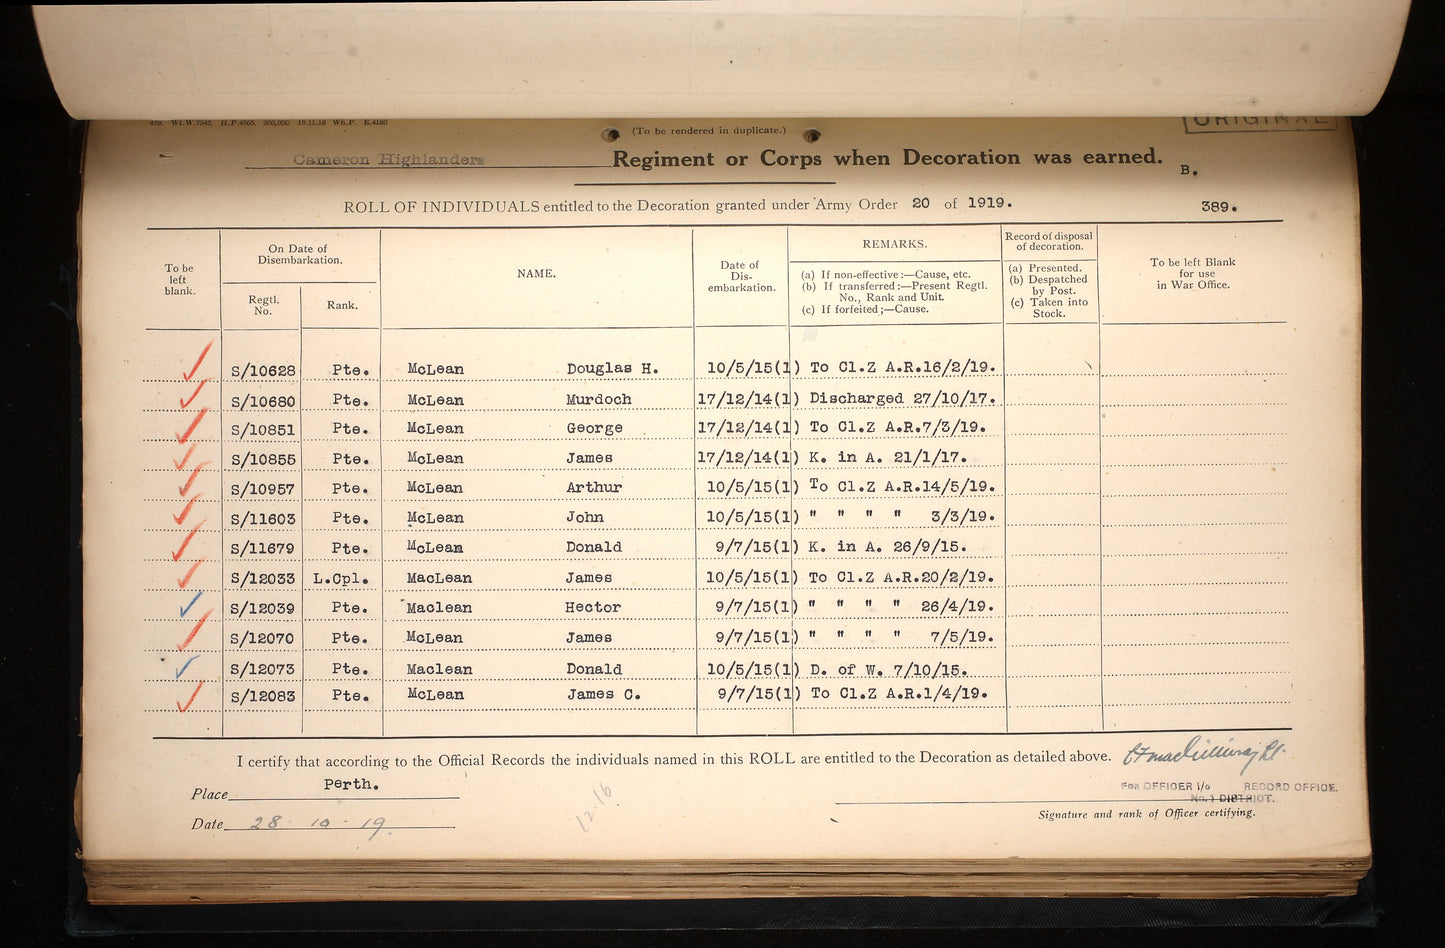 458. Wt.W.7545. H.P.4565. 200,000. 19.11.18 Wh.P. E.4180
(To be rendered in duplicate.)
ORIGINAL
Cameron Highlanders Regiment or Corps when Decoration was earned.
B.
ROLL OF INDIVIDUALS entitled to the Decoration granted under Army Order 20 of 1919.
389.
To be left blank.
On Date of Disembarkation.
Regtl. No.
Rank.
NAME.
Date of Dis-embarkation.
REMARKS.
(a) If non-effective :—Cause, etc.
(b) If transferred :—Present Regtl. No., Rank and Unit.
(c) If forfeited ;—Cause.
Record of disposal of decoration.
(a) Presented.
(b) Despatched by Post.
(c) Taken into Stock.
To be left Blank for use in War Office.
S/10628 Pte. McLean Douglas H. 10/5/15(1) To Cl.Z A.R.16/2/19.
S/10680 Pte. McLean Murdoch 17/12/14(1) Discharged 27/10/17.
S/10851 Pte. McLean George 17/12/14(1) To Cl.Z A.R.7/3/19.
S/10855 Pte. McLean James 17/12/14(1) K. in A. 21/1/17.
S/10957 Pte. McLean Arthur 10/5/15(1) To Cl.Z A.R.14/5/19.
S/11603 Pte. McLean John 10/5/15(1) " " " " 3/3/19.
S/11679 Pte. McLean Donald 9/7/15(1) K. in A. 26/9/15.
S/12033 L.Cpl. MacLean James 10/5/15(1) To Cl.Z A.R.20/2/19.
S/12039 Pte. Maclean Hector 9/7/15(1) " " " " 26/4/19.
S/12070 Pte. McLean James 9/7/15(1) " " " " 7/5/19.
S/12073 Pte. Maclean Donald 10/5/15(1) D. of W. 7/10/15.
S/12083 Pte. McLean James C. 9/7/15(1) To Cl.Z A.R.1/4/19.
I certify that according to the Official Records the individuals named in this ROLL are entitled to the Decoration as detailed above.
Place Perth.
FOR OFFICER I/C RECORD OFFICE.
No. 1 DISTRICT.
Signature and rank of Officer certifying.
Date 28 · 10 · 19.
12-16